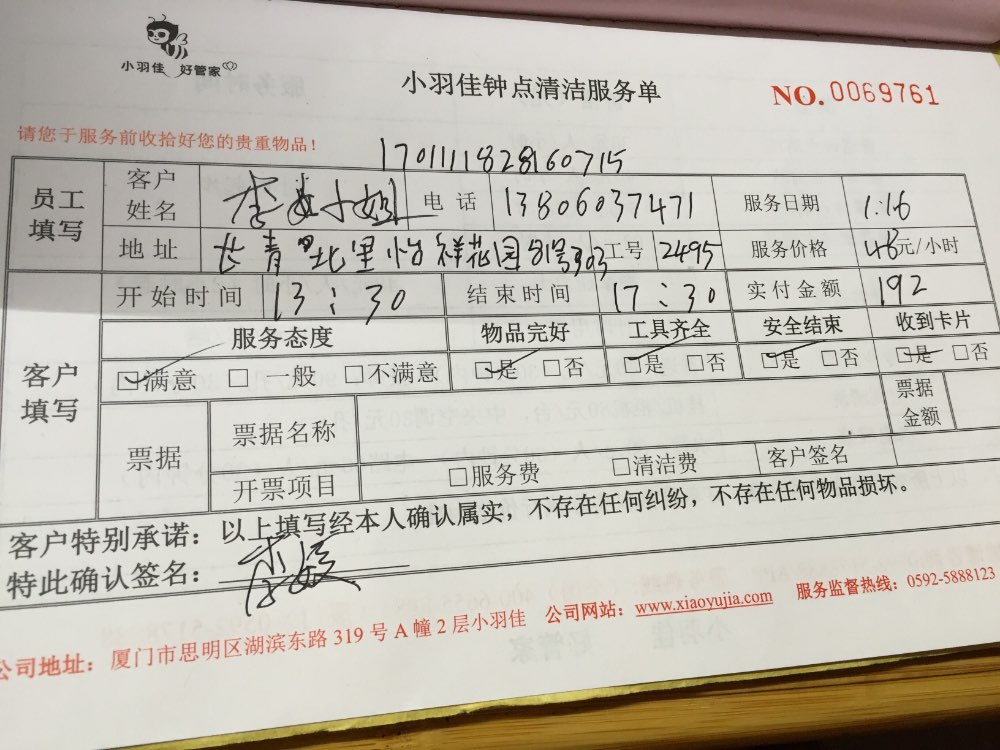 小羽佳 好管家
小羽佳钟点清洁服务单
NO. 0069761
请您于服务前收拾好您的贵重物品!
1701111828160715
员工填写 客户姓名 李 小姐 电话 13806037471 服务日期 1.16
地址 长青北里怡祥花园81号303 工号 2495 服务价格 48元/小时
客户填写 开始时间 13:30 结束时间 17:30 实付金额 192
服务态度 物品完好 工具齐全 安全结束 收到卡片
☑满意 □一般 □不满意 ☑是 □否 ☑是 □否 ☑是 □否 ☑是 □否
票据 票据名称 票据金额
开票项目 □服务费 □清洁费 客户签名
客户特别承诺:以上填写经本人确认属实,不存在任何纠纷,不存在任何物品损坏。
特此确认签名:
公司地址:厦门市思明区湖滨东路 319 号 A 幢 2 层小羽佳 公司网站:www.xiaoyujia.com 服务监督热线:0592-5888123